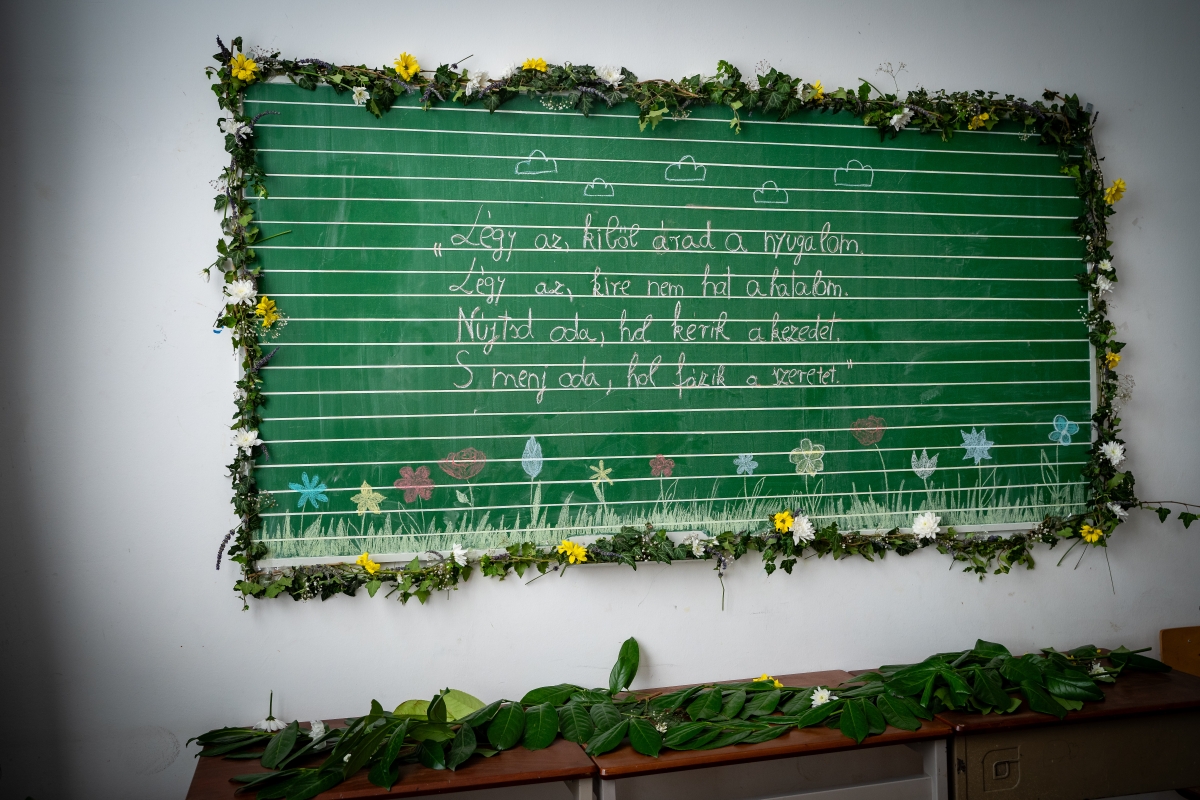 „Légy az, kiből árad a nyugalom.
Légy az, kire nem hat a hatalom.
Nyújtsd oda, hol kérik a kezedet.
S menj oda, hol fázik a szeretet."